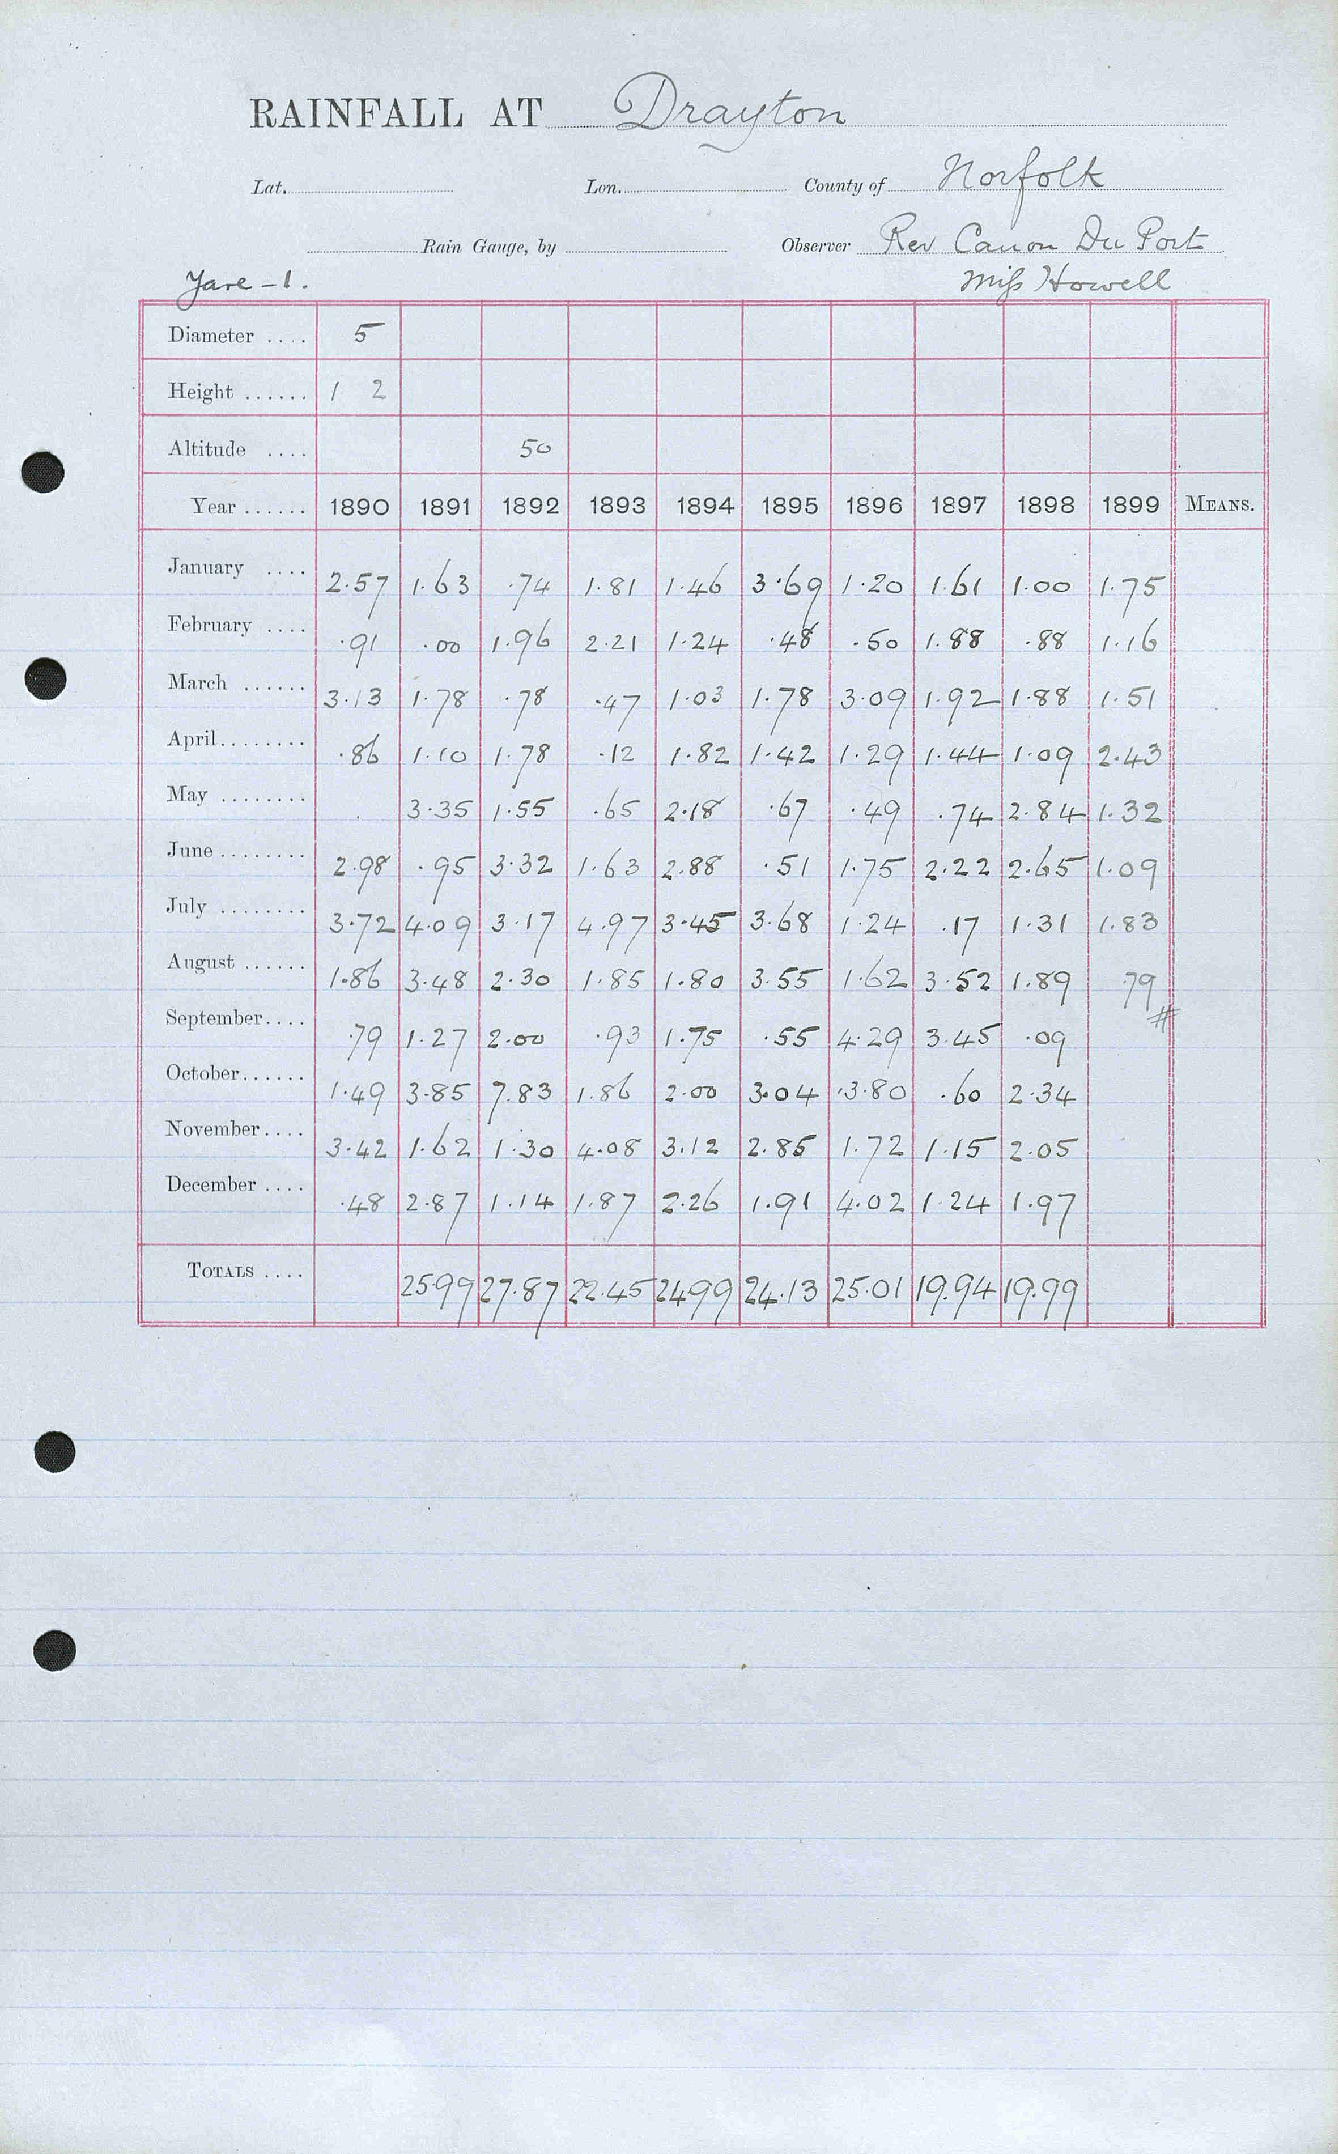 RAINFALL AT Drayton
Lat. Lon. County of Norfolk
Rain Gauge, by Observer Rev Canon Du Port
Yare - 1. Miss Howell
Diameter .... 5
Height ...... 1 2
Altitude .... 50
Year ...... 1890 1891 1892 1893 1894 1895 1896 1897 1898 1899 MEANS.
January .... 2.57 1.63 .74 1.81 1.46 3.69 1.20 1.61 1.00 1.75
February .... .91 .00 1.96 2.21 1.24 .48 .50 1.88 .88 1.16
March ...... 3.13 1.78 .78 .47 1.03 1.78 3.09 1.92 1.88 1.51
April........ .86 1.10 1.78 .12 1.82 1.42 1.29 1.44 1.09 2.43
May ........ 3.35 1.55 .65 2.18 .67 .49 .74 2.84 1.32
June ........ 2.98 .95 3.32 1.63 2.88 .51 1.75 2.22 2.65 1.09
July ........ 3.72 4.09 3.17 4.97 3.45 3.68 1.24 .17 1.31 1.83
August ...... 1.86 3.48 2.30 1.85 1.80 3.55 1.62 3.52 1.89 .79
September.... .79 1.27 2.00 .93 1.75 .55 4.29 3.45 .09 #
October...... 1.49 3.85 7.83 1.86 2.00 3.04 3.80 .60 2.34
November.... 3.42 1.62 1.30 4.08 3.12 2.85 1.72 1.15 2.05
December .... .48 2.87 1.14 1.87 2.26 1.91 4.02 1.24 1.97
TOTALS .... 25.99 27.87 22.45 24.99 24.13 25.01 19.94 19.99